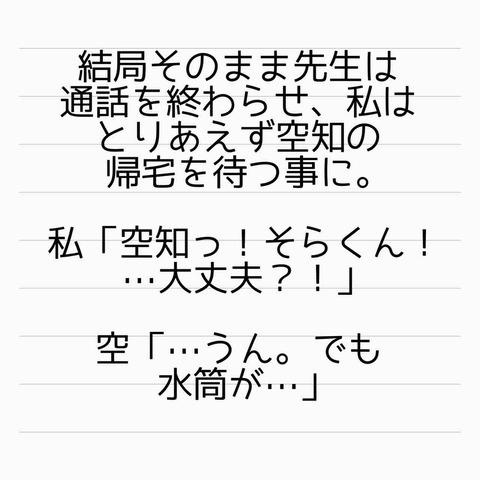 結局そのまま先生は
通話を終わらせ、私は
とりあえず空知の
帰宅を待つ事に。
私「空知っ！そらくん！
…大丈夫？！」
空「…うん。でも
水筒が…」